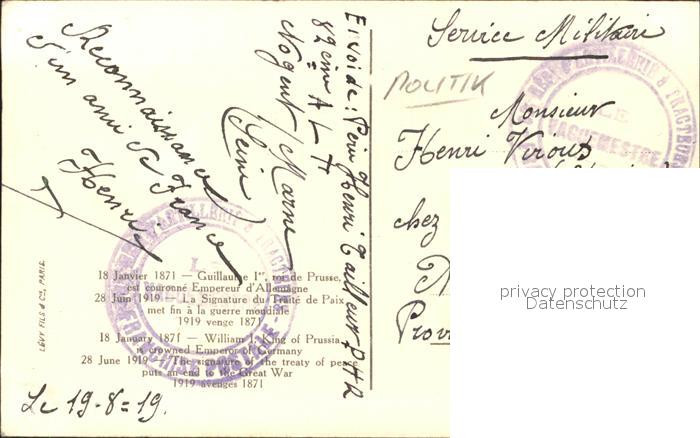 Reconnaissance
d'un ami de France
Henri
Envoi de : Henri Tailleur
82ème A L H
Nogent/Marne
(Seine)
Service Militaire
POLITIK
Monsieur
Henri Viroux
chez
Prov
LE
VAGUEMESTRE
D'ARTILLERIE À TRACTEURS
18 Janvier 1871 — Guillaume Ier, roi de Prusse,
est couronné Empereur d'Allemagne
28 Juin 1919 — La Signature du Traité de Paix
met fin à la guerre mondiale
1919 venge 1871
18 January 1871 — William I, King of Prussia
is crowned Emperor of Germany
28 June 1919 — The signature of the treaty of peace
puts an end to the Great War
1919 avenges 1871
LÉVY FILS & CO, PARIS.
Le 19-8=19.
privacy protection
Datenschutz